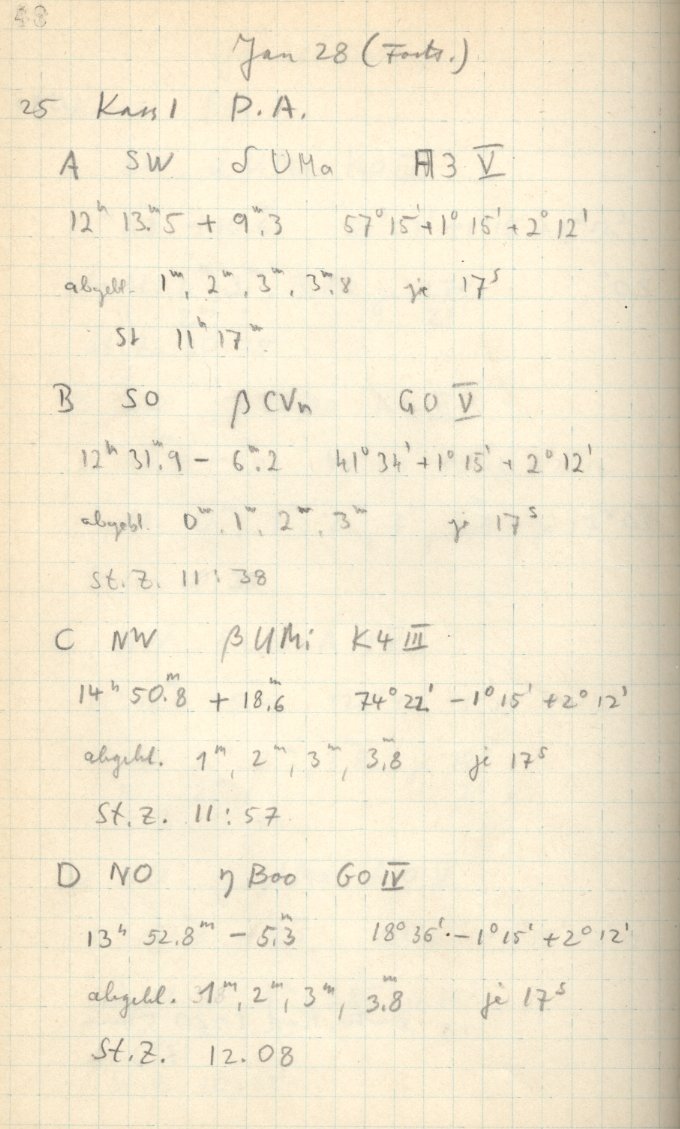 48
Jan 28 (Forts.)
25 Kass 1 P.A.
A SW δ UMa A3 V
12ʰ 13ᵐ.5 + 9ᵐ.3 57° 15' + 1° 15' + 2° 12'
abgebl. 1ᵐ, 2ᵐ, 3ᵐ, 3ᵐ.8 je 17ˢ
St 11ʰ 17ᵐ
B SO β CVn G0 V
12ʰ 31ᵐ.9 – 6ᵐ.2 41° 34' + 1° 15' + 2° 12'
abgebl. 0ᵐ, 1ᵐ, 2ᵐ, 3ᵐ je 17ˢ
St.Z. 11:38
C NW β UMi K4 III
14ʰ 50.ᵐ8 + 18.ᵐ6 74° 22' – 1° 15' + 2° 12'
abgebl. 1ᵐ, 2ᵐ, 3ᵐ, 3.ᵐ8 je 17ˢ
St.Z. 11:57
D NO η Boo G0 IV
13ʰ 52.8ᵐ – 5.ᵐ3 18° 36' – 1° 15' + 2° 12'
abgebl. 1ᵐ, 2ᵐ, 3ᵐ, 3.ᵐ8 je 17ˢ
St.Z. 12.08